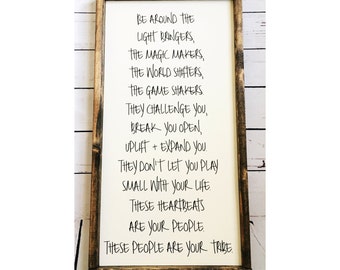 BE AROUND THE
LIGHT BRINGERS,
THE MAGIC MAKERS,
THE WORLD SHIFTERS,
THE GAME SHAKERS
THEY CHALLENGE YOU,
BREAK YOU OPEN,
UPLIFT + EXPAND YOU
THEY DON'T LET YOU PLAY
SMALL WITH YOUR LIFE
THESE HEARTBEATS
ARE YOUR PEOPLE
THESE PEOPLE ARE YOUR TRIBE